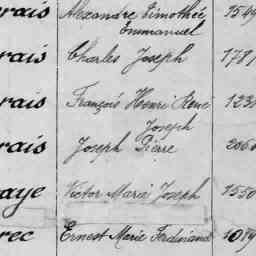 rais Alexandre Timothée 1549
Emmanuel
rais Charles Joseph 1781
rais François Henri René 123
Joseph
rais Joseph Pierre 206
aye Victor Marie Joseph 1550
rec Ernest Marie Ferdinand 1019